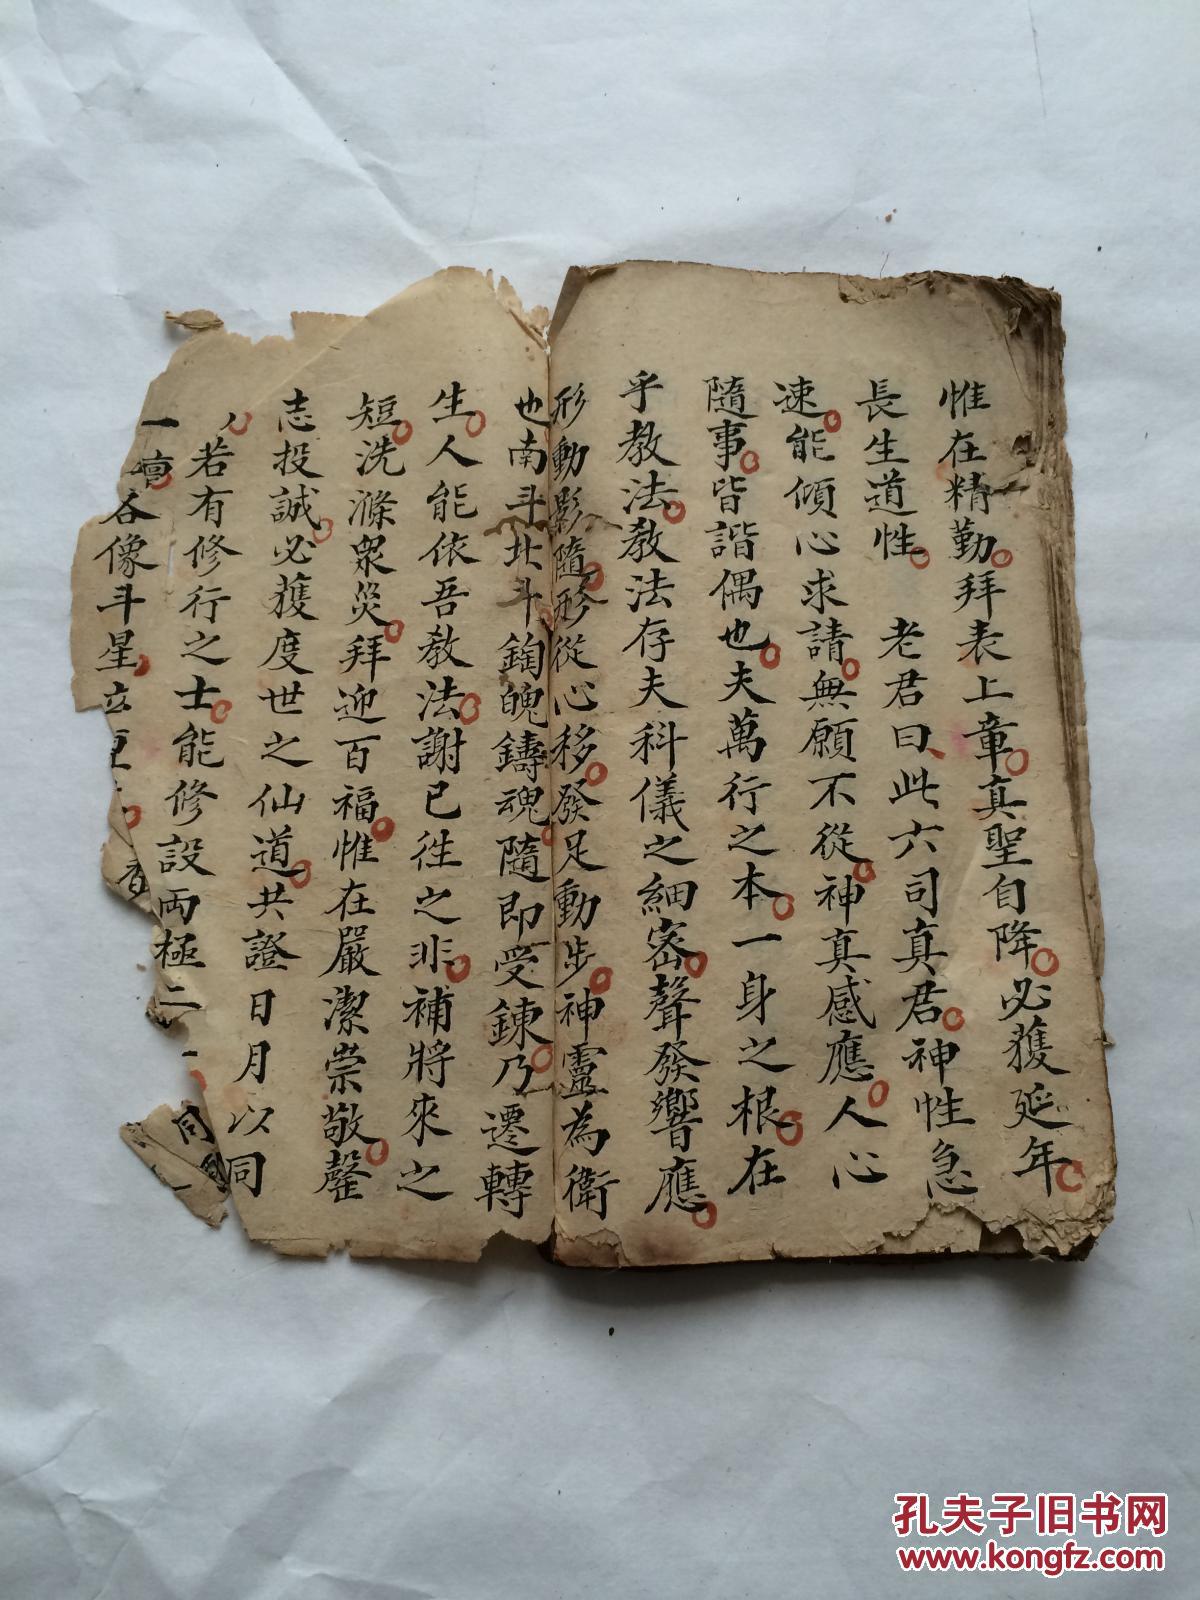 惟在精勤拜表上章真聖自降必獲延年
長生道性 老君曰此六司真君神性急
速能傾心求請無願不從神真感應人心
隨事皆諧偶也夫萬行之本一身之根在
乎教法教法存夫科儀之細密聲發響應
形動影隨形從心移發足動步神靈為衛
也南斗北斗鑄魂隨即受鍊乃遷轉
生人能依吾教法謝已徃之非補將來之
短洗滌衆災拜迎百福惟在嚴潔崇敬罄
志投誠必獲度世之仙道共證日月以同
若有修行之士能修設兩極二
一壇各像斗星立
香
同
孔夫子旧书网
www.kongfz.com